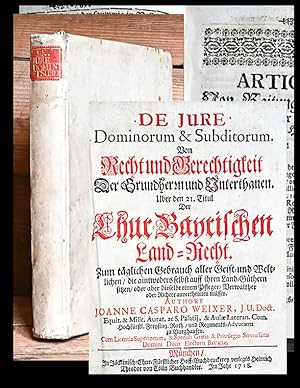 JURE
DE JURE
Dominorum & Subditorum.
Von
Recht und Gerechtigkeit
Der Grundherrn und Unterthanen.
Uber den 21. Titul
Der
Chur Bayrischen
Land-Recht.
Zum täglichen Gebrauch aller Geist- und Welt-
lichen / die aintweders selbst auff ihren Land-Güthern
sitzen / oder aber dieselbe einem Pfleger / Verwalther
oder Richter anverthrauen müssen.
AUTHORE
JOANNE CASPARO WEIXER, J.U. Doct.
Equit. & Milit. Aurat. ac S. Palatij, & Aulæ Lateran. Com.
Hochfürstl. Freysing. Rath / und Regiments-Advocaten
zu Burghausen.
Cum Licentia Superiorum, & Speciali Gratia & Privilegio Serenissimi
Domini Ducis Electoris Bavariæ.
München /
Theodor von Cöln Buchhandler. Im Jahr 1718.
ARTIC